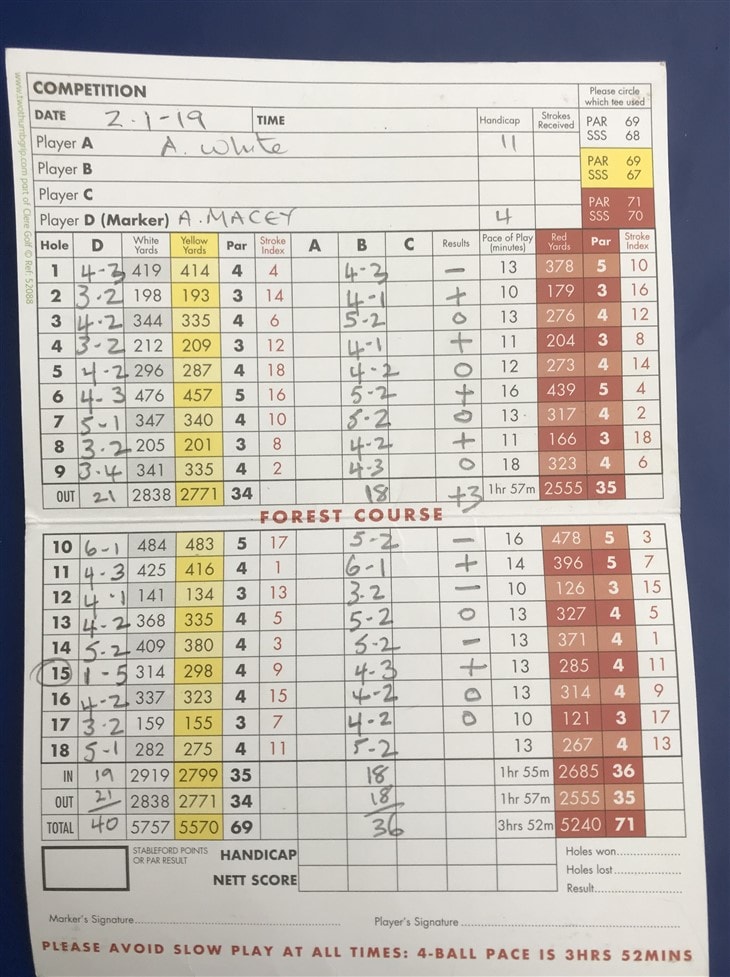 www.twothumbgrip.com part of Clene Golf © Ref: 52088
COMPETITION Please circle which tee used
DATE 2-1-19 TIME Handicap Strokes Received PAR 69 SSS 68
Player A A. White 11
Player B PAR 69 SSS 67
Player C
Player D (Marker) A. MACEY 4 PAR 71 SSS 70
Hole D White Yards Yellow Yards Par Stroke Index A B C Results Pace of Play (minutes) Red Yards Par Stroke Index
1 4-3 419 414 4 4 4-3 – 13 378 5 10
2 3-2 198 193 3 14 4-1 + 10 179 3 16
3 4-2 344 335 4 6 5-2 0 13 276 4 12
4 3-2 212 209 3 12 4-1 + 11 204 3 8
5 4-2 296 287 4 18 4-2 0 12 273 4 14
6 4-3 476 457 5 16 5-2 + 16 439 5 4
7 5-1 347 340 4 10 5-2 0 13 317 4 2
8 3-2 205 201 3 8 4-2 + 11 166 3 18
9 3-4 341 335 4 2 4-3 0 18 323 4 6
OUT 21 2838 2771 34 18 +3 1hr 57m 2555 35
FOREST COURSE
10 6-1 484 483 5 17 5-2 – 16 478 5 3
11 4-3 425 416 4 1 6-1 + 14 396 5 7
12 4-1 141 134 3 13 3-2 – 10 126 3 15
13 4-2 368 335 4 5 5-2 0 13 327 4 5
14 5-2 409 380 4 3 5-2 – 13 371 4 1
15 1-5 314 298 4 9 4-3 + 13 285 4 11
16 4-2 337 323 4 15 4-2 0 13 314 4 9
17 3-2 159 155 3 7 4-2 0 10 121 3 17
18 5-1 282 275 4 11 5-2 13 267 4 13
IN 19 2919 2799 35 18 1hr 55m 2685 36
OUT 21 2838 2771 34 18 1hr 57m 2555 35
TOTAL 40 5757 5570 69 36 3hrs 52m 5240 71
STABLEFORD POINTS OR PAR RESULT HANDICAP Holes won
NETT SCORE Holes lost
Result
Marker's Signature Player's Signature
PLEASE AVOID SLOW PLAY AT ALL TIMES: 4-BALL PACE IS 3HRS 52MINS